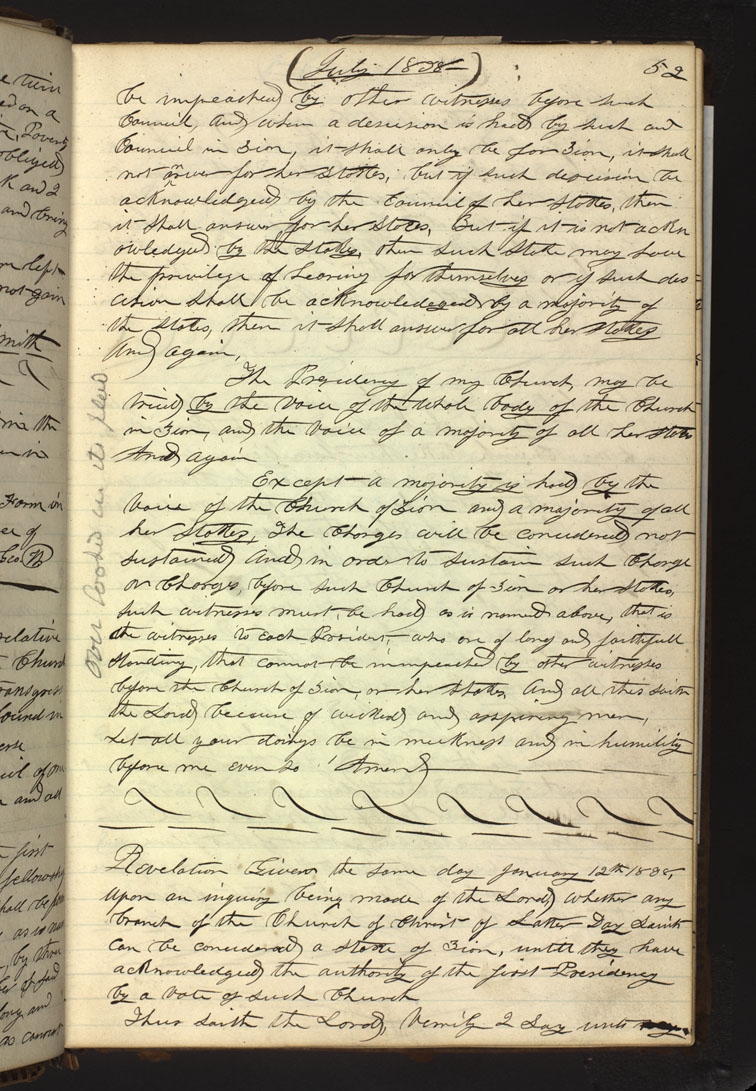 (July 1838) 52
be impeached by other witnesses before such
Council, and when a descision is had by such an
Council in Zion, it shall only be for Zion, it shall
not answer for her Stakes, but if such descision be
acknowledged by the Council of her Stakes, then
it shall answer for her Stakes, But if it is not ackn
owledged by the Stakes, then such Stake may have
the privilege of hearing for themselves or if such des
cision shall be acknowledeged by a majority of
the Stakes, then it shall answer for all her Stakes
And again,
The Presidency of my Church, may be
tried by the voice of the whole body of the Church
in Zion, and the voice of a majority of all her Stakes
And again
Except a majority is had by the
voice of the Church of Zion and a majority of all
her Stakes, The Charges will be concidered not
sustained and in order to sustain such Charge
or Charges, before such Church of Zion or her Stakes,
such witnesses must be had as is named above, that is
the witnesses to each President, who are of long and faithfull
standing, that cannot be immpeached by other witnesses
before the Church of Zion, or her Stakes, And all this saith
the Lord because of wicked and asspiring men,
Let all your doings be in meekness and in humility
before me even so Amen
Revelation Given the same day January 12th 1838,
upon an inquiry being made of the Lord whether any
branch of the Church of Christ of Latter Day Saints
can be concidered a stake of Zion, untill they have
acknowledged the authority of the first Presidency
by a vote of such Church
Thus saith the Lord, Verrily I Say unto
over looked in its place
e turn
ed on a
Poverty
obliged
k and I
and bring
left
not gain
mith
in the
Form in
ee of
Geo
relative
Church
ransgress
found in
cil of
and all
first
fellowship
hall be
by three
of said
long and
as cannot